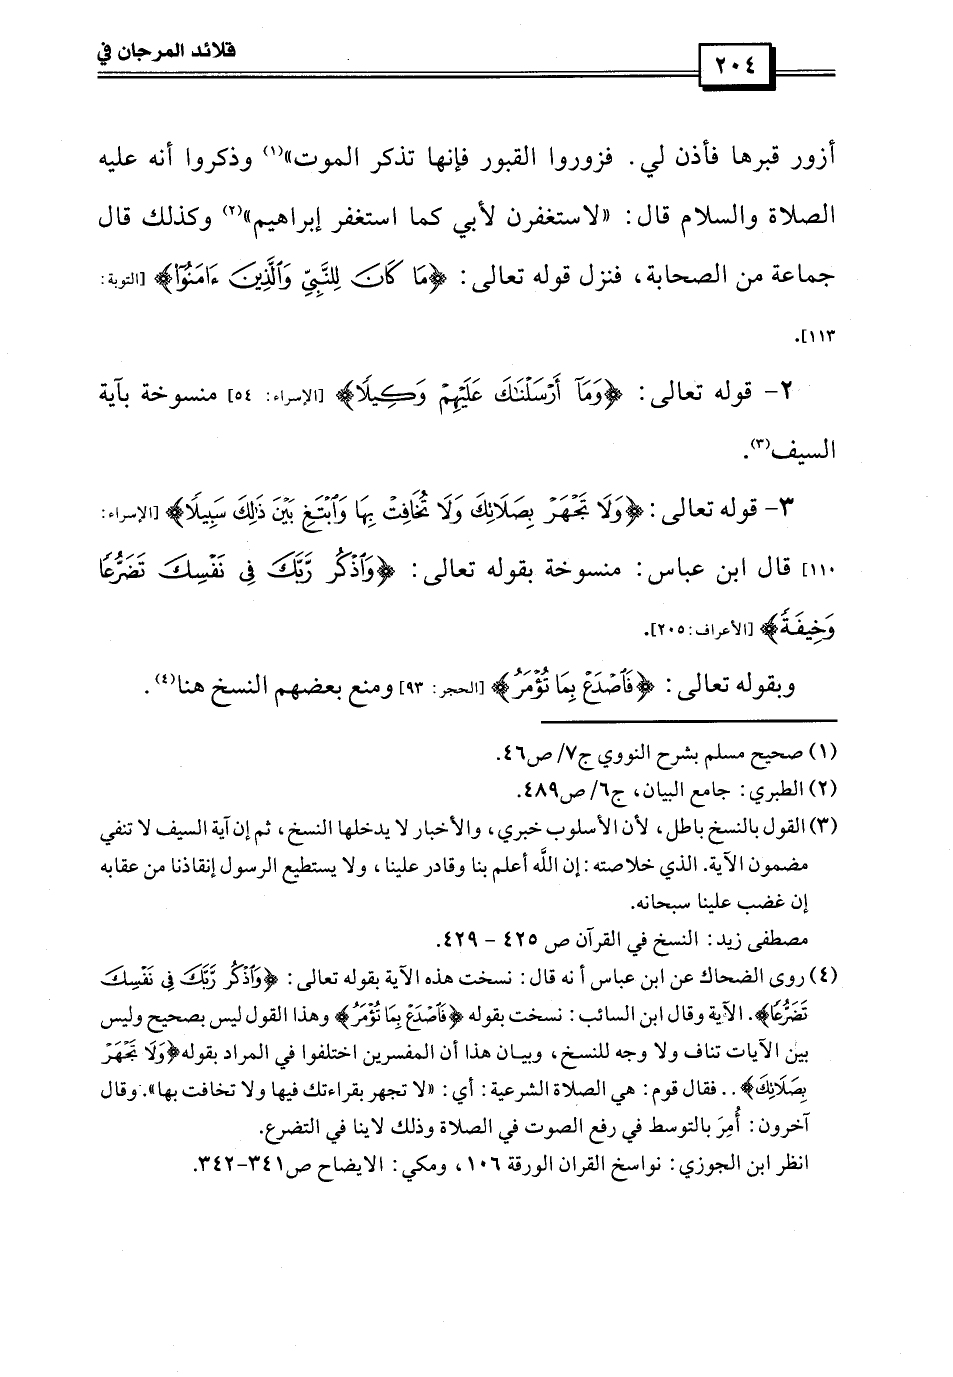 قلائد المرجان في
٢٠٤
أزور قبرها فأذن لي. فزوروا القبور فإنها تذكر الموت»(١) وذكروا أنه عليه
الصلاة والسلام قال: «لاستغفرن لأبي كما استغفر إبراهيم»(٢) وكذلك قال
جماعة من الصحابة، فنزل قوله تعالى: ﴿مَا كَانَ لِلنَّبِيِّ وَٱلَّذِينَ ءَامَنُوٓا۟﴾ [التوبة:
١١٣].
٢- قوله تعالى: ﴿وَمَآ أَرْسَلْنَٰكَ عَلَيْهِمْ وَكِيلًا﴾ [الإسراء: ٥٤] منسوخة بآية
السيف(٣).
٣- قوله تعالى: ﴿وَلَا تَجْهَرْ بِصَلَاتِكَ وَلَا تُخَافِتْ بِهَا وَٱبْتَغِ بَيْنَ ذَٰلِكَ سَبِيلًا﴾ [الإسراء:
١١٠] قال ابن عباس: منسوخة بقوله تعالى: ﴿وَٱذْكُر رَّبَّكَ فِى نَفْسِكَ تَضَرُّعًا
وَخِيفَةً﴾ [الأعراف: ٢٠٥].
وبقوله تعالى: ﴿فَٱصْدَعْ بِمَا تُؤْمَرُ﴾ [الحجر: ٩٣] ومنع بعضهم النسخ هنا(٤).
(١) صحيح مسلم بشرح النووي ج٧/ ص٤٦.
(٢) الطبري: جامع البيان، ج٦/ ص٤٨٩.
(٣) القول بالنسخ باطل، لأن الأسلوب خبري، والأخبار لا يدخلها النسخ، ثم إن آية السيف لا تنفي
مضمون الآية. الذي خلاصته: إن اللَّه أعلم بنا وقادر علينا، ولا يستطيع الرسول إنقاذنا من عقابه
إن غضب علينا سبحانه.
مصطفى زيد: النسخ في القرآن ص ٤٢٥ - ٤٢٩.
(٤) روى الضحاك عن ابن عباس أنه قال: نسخت هذه الآية بقوله تعالى: ﴿وَٱذْكُر رَّبَّكَ فِى نَفْسِكَ
تَضَرُّعًا﴾. الآية وقال ابن السائب: نسخت بقوله ﴿فَٱصْدَعْ بِمَا تُؤْمَرُ﴾ وهذا القول ليس بصحيح وليس
بين الآيات تناف ولا وجه للنسخ، وبيان هذا أن المفسرين اختلفوا في المراد بقوله ﴿وَلَا تَجْهَرْ
بِصَلَاتِكَ﴾.. فقال قوم: هي الصلاة الشرعية: أي: «لا تجهر بقراءتك فيها ولا تخافت بها». وقال
آخرون: أُمِرَ بالتوسط في رفع الصوت في الصلاة وذلك لاينا في التضرع.
انظر ابن الجوزي: نواسخ القران الورقة ١٠٦، ومكي: الايضاح ص٣٤١-٣٤٢.